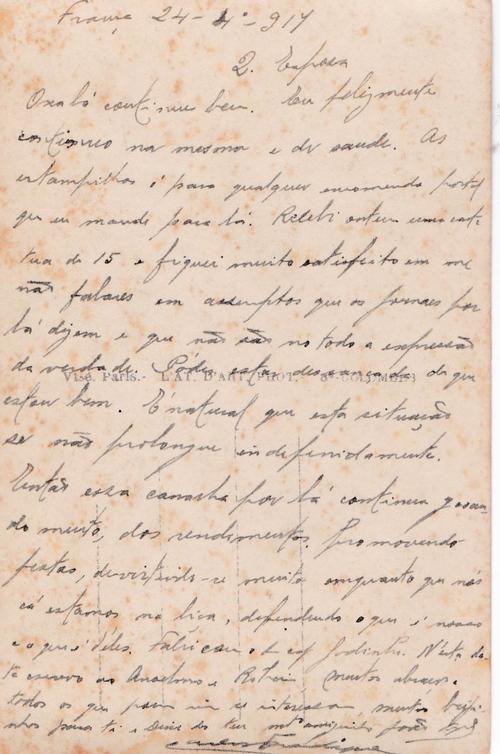 França 24-4º-917
Q. Esposa
Oxalá continue bem. Eu felizmente
continuo na mesma e de saude. As
estampilhas é para qualquer encomenda postal
que eu mande para lá. Recebi ontem uma car-
tua de 15 e fiquei muito satisfeito em me
não falares em assumptos que os jornaes por
lá dizem e que não são no todo a expressão
da verdade. Podes estar descançada de que
Visé. Paris.- L'AT. D'ART. PHOT. - COLOMBES
estou bem. É natural que esta situação
se não prolongue indefenidamente.
Então essa canalha por lá continua gosan-
do muito, dos rendimentos. Promovendo
festas, devirtindo-se muito emquanto que nós
cá estamos na bica, defendendo o que é nosso
e o que é deles. Fabricam o Godinho. N'esta da-
ta escrevo ao Anselmo e muitos abraços a
todos os que por mim se interessam, muitos beiji-
nhos para ti e do teu mto amiguinho